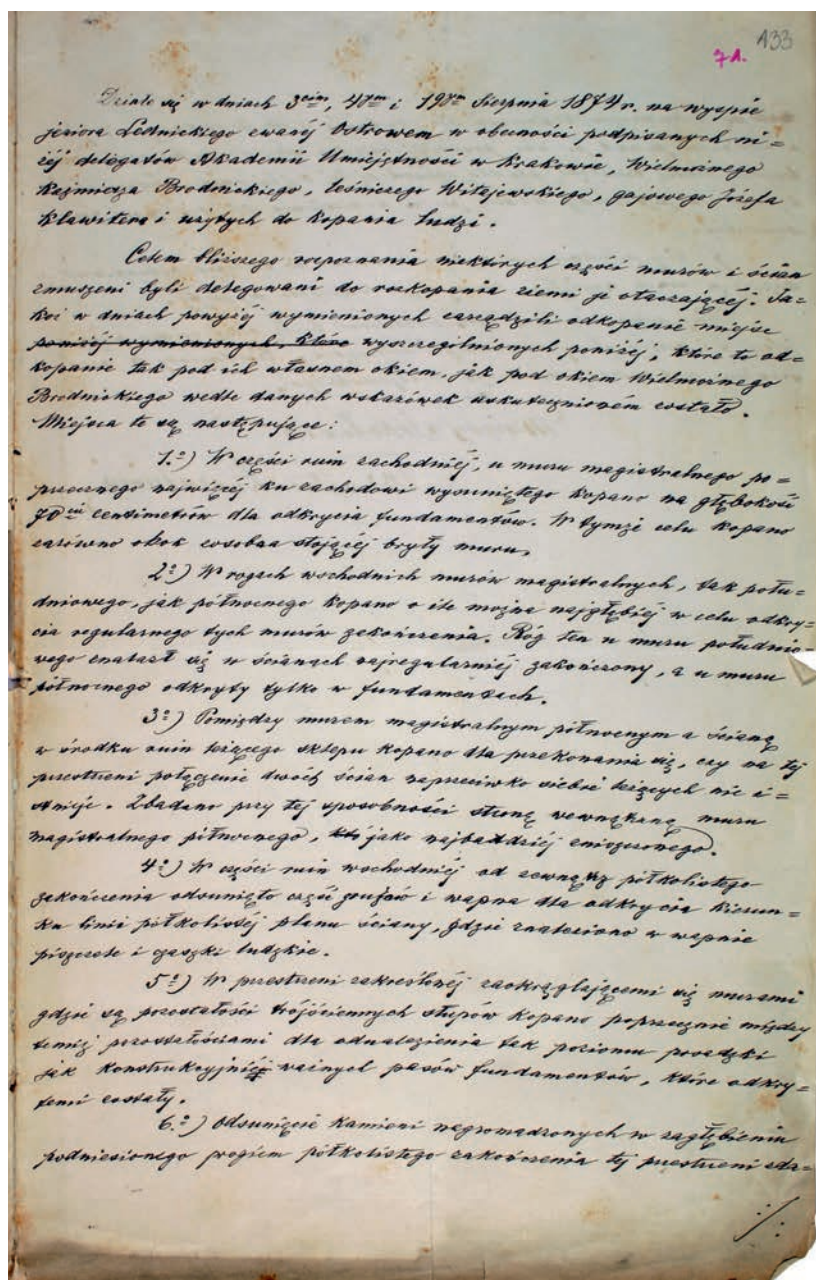 133
71.
Działo się w dniach 3cim, 4tym i 19tym Sierpnia 1874 r. na wyspie
jeziora Lednickiego zwanéj Ostrowem w obecności podpisanych ni=
żéj delegatów Akademii Umiejętności w Krakowie, Wielmożnego
Kaźmirza Brodnickiego, leśniczego Witajewskiego, gajowego Józefa
Klawitera i użytych do kopania ludzi.
Celem bliższego rozpoznania niektórych części murów i ścian
zmuszeni byli delegowani do rozkopania ziemi je otaczającéj. Ja=
koż w dniach powyżéj wymienionych zarządzili odkopanie miejsc
poniżéj wymienionych, które wyszczególnionych poniżéj, które to od=
kopanie tak pod ich własnem okiem, jak pod okiem Wielmożnego
Brodnickiego wedle danych wskazówek uskutecznioném zostało.
Miejsca te są następujące:
1.o) W części ruin zachodniéj, u muru magistralnego po=
przecznego najwięcéj ku zachodowi wysuniętego kopano na głębokość
70ciu centimetrów dla odkrycia fundamentów. W tymże celu kopano
zarówno obok zosobna stojącéj bryły muru.
2o) W rogach wschodnich murów magistralnych, tak połu=
dniowego, jak północnego kopano o ile można najgłębiéj w celu odkry=
cia regularnego tych murów zakończenia. Róg ten u muru południo=
wego znalazł się w ścianach najregularniéj zakończony, a u muru
północnego odkryty tylko w fundamentach.
3o) Pomiędzy murem magistralnym północnym a ścianą
w środku ruin leżącego sklepu kopano dla przekonania się, czy na téj
przestrzeni połączenie dwóch ścian naprzeciwko siebie leżących nie i=
stnieje. Zbadano przy téj sposobności stronę wewnętrzną muru
magistralnego północnego, jako najbardziéj zniszczonego.
4o) W części ruin wschodniéj od zewnątrz półkolistego
zakończenia odsunięto część gruzów i wapna dla odkrycia kierun=
ku linii półkolistéj planu ściany, gdzie znaleziono w wapnie
piszczele i czaszki ludzkie.
5o) W przestrzeni zakreślonéj zaokrąglającemi się murami
gdzie są pozostałości trójściennych słupów kopano poprzecznie między
temiż pozostałościami dla odnalezienia tak poziomu posadzki
jak konstrukcyjnie ważnych pasów fundamentów, które odkry=
temi zostały.
6.o) Odsunięcie kamieni nagromadzonych w zagłębieniu
podniesionego progiem półkolistego zakończenia téj przestrzeni